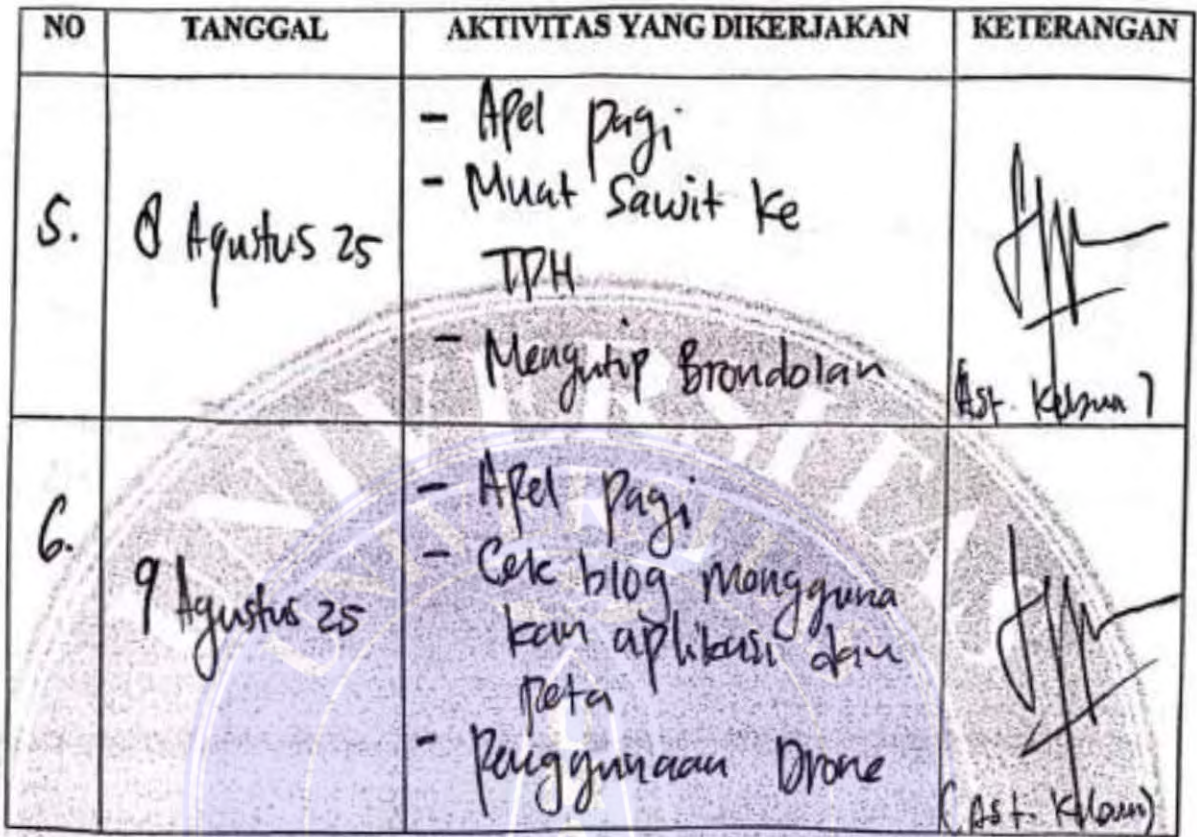 NO TANGGAL AKTIVITAS YANG DIKERJAKAN KETERANGAN
5. 8 Agustus 25
- Apel pagi
- Muat Sawit ke
TPH
- Mengutip Brondolan
(Ast. Kebun)
6. 9 Agustus 25
- Apel pagi
- Cek blog mengguna
kan aplikasi dan
peta
- Penggunaan Drone
(Ast. Kebun)
UNIVERSITAS